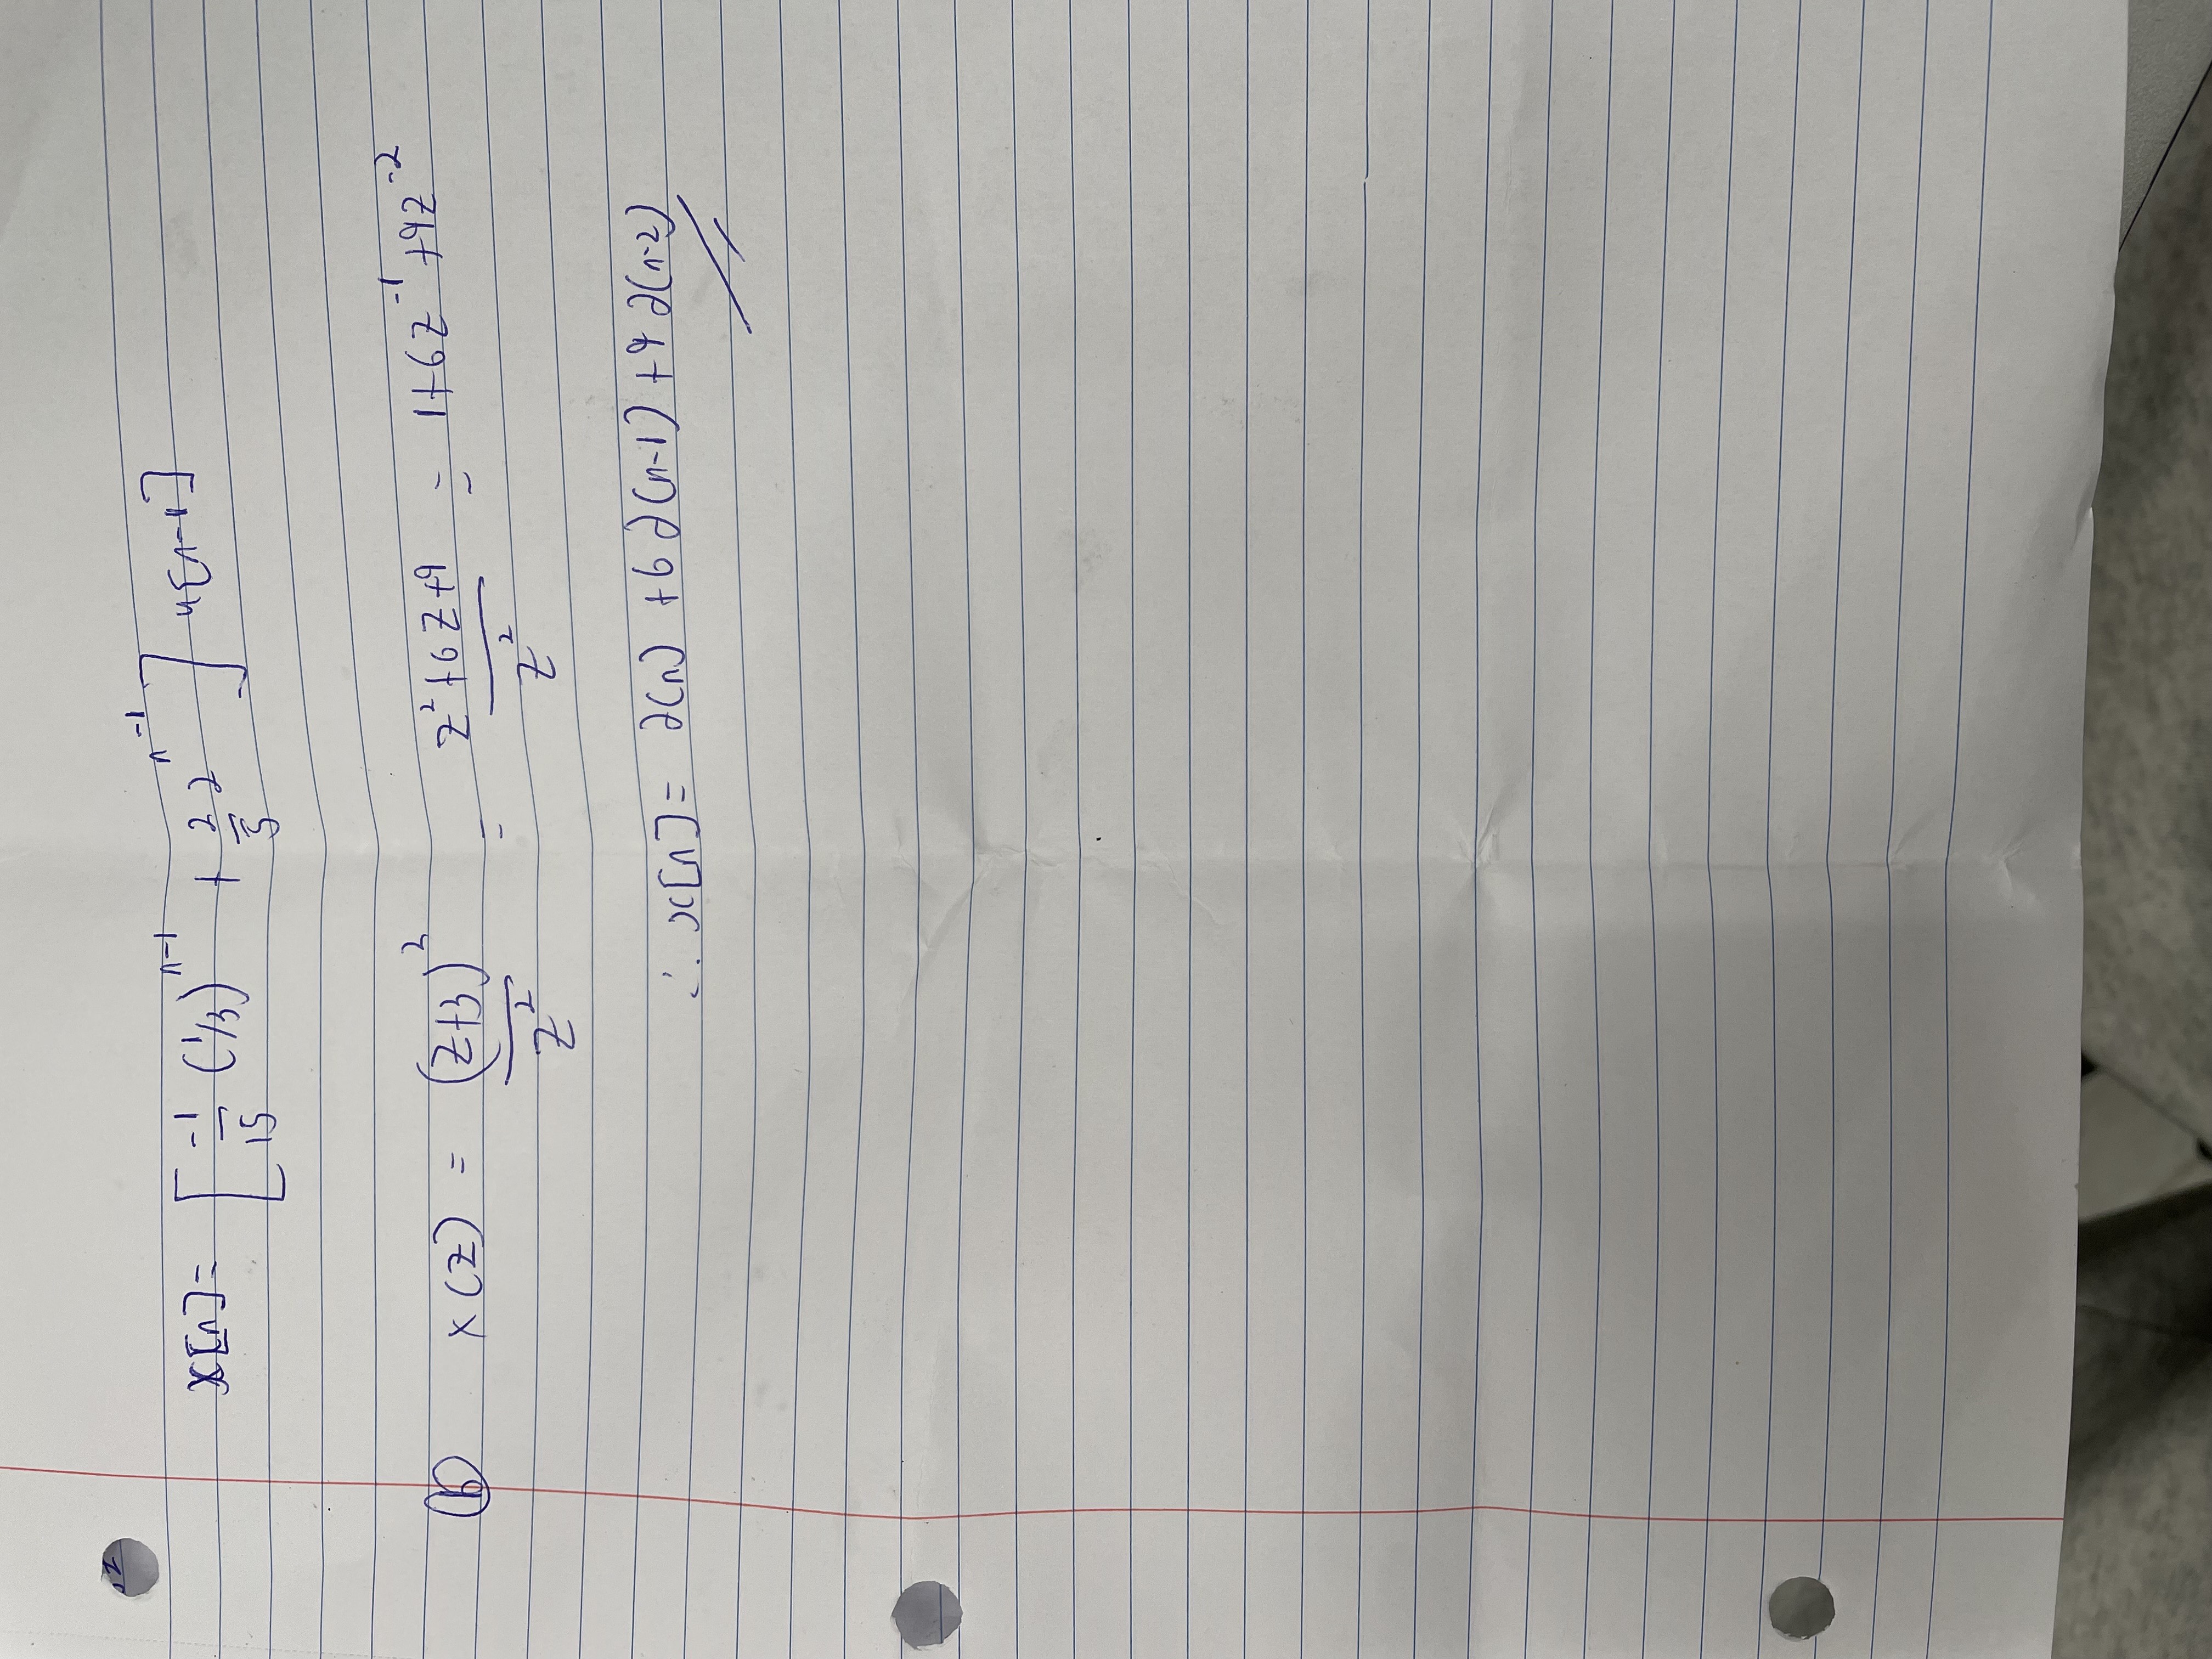 x[n] = [ -1/15 (1/3)^{n-1} + 2/5 2^{n-1} ] u[n-1]
(b) X(Z) = (Z+3)^2 / Z^2 = (Z^2+6Z+9) / Z^2 = 1+6Z^{-1}+9Z^{-2}
∴ x[n] = ∂(n) +6 ∂(n-1) +9 ∂(n-2)